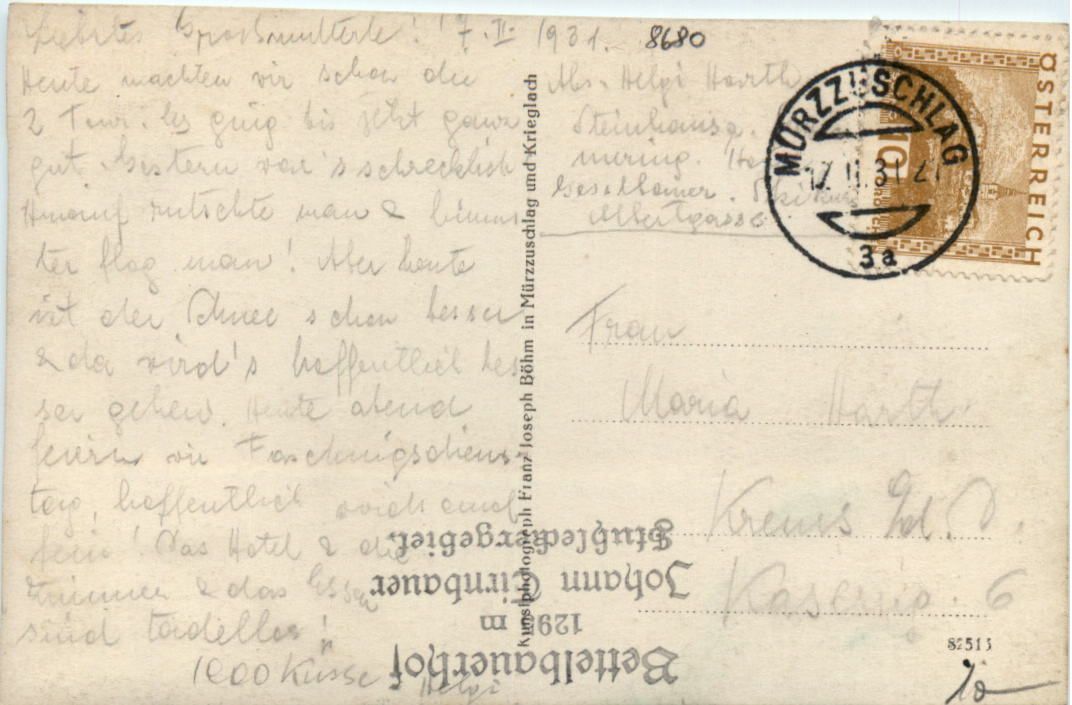 Liebstes Grossmutterle! 17. II. 1931.
Heute machten wir schon die
2 Tour. Es ging bis jetzt ganz
gut. Gestern war's schrecklich
Hinauf rutschte man & hinun
ter flog man! Aber heute
ist der Schnee schon besser
& da wird's hoffentlich bes
ser gehen. Heute abend
feiern wir Faschingsdiens-
tag, hoffentlich wirds auch
fein! Das Hotel & die
Zimmer & das Essen
sind tadellos!
1000 Küsse Helgi
8680
Abs. Helgi Harth
Steinhaus a.
mering.
Albertgasse
Kunstphotograph Franz Joseph Böhm in Mürzzuschlag und Krieglach
MÜRZZUSCHLAG
17. II. 31
3a
ÖSTERREICH
10
Frau
Maria Harth
Krems a/d. D.
Kaserng. 6
Bettelbauerhof
1295 m
Johann Tirnbauer
Stuhleckergebiet.
82513
10